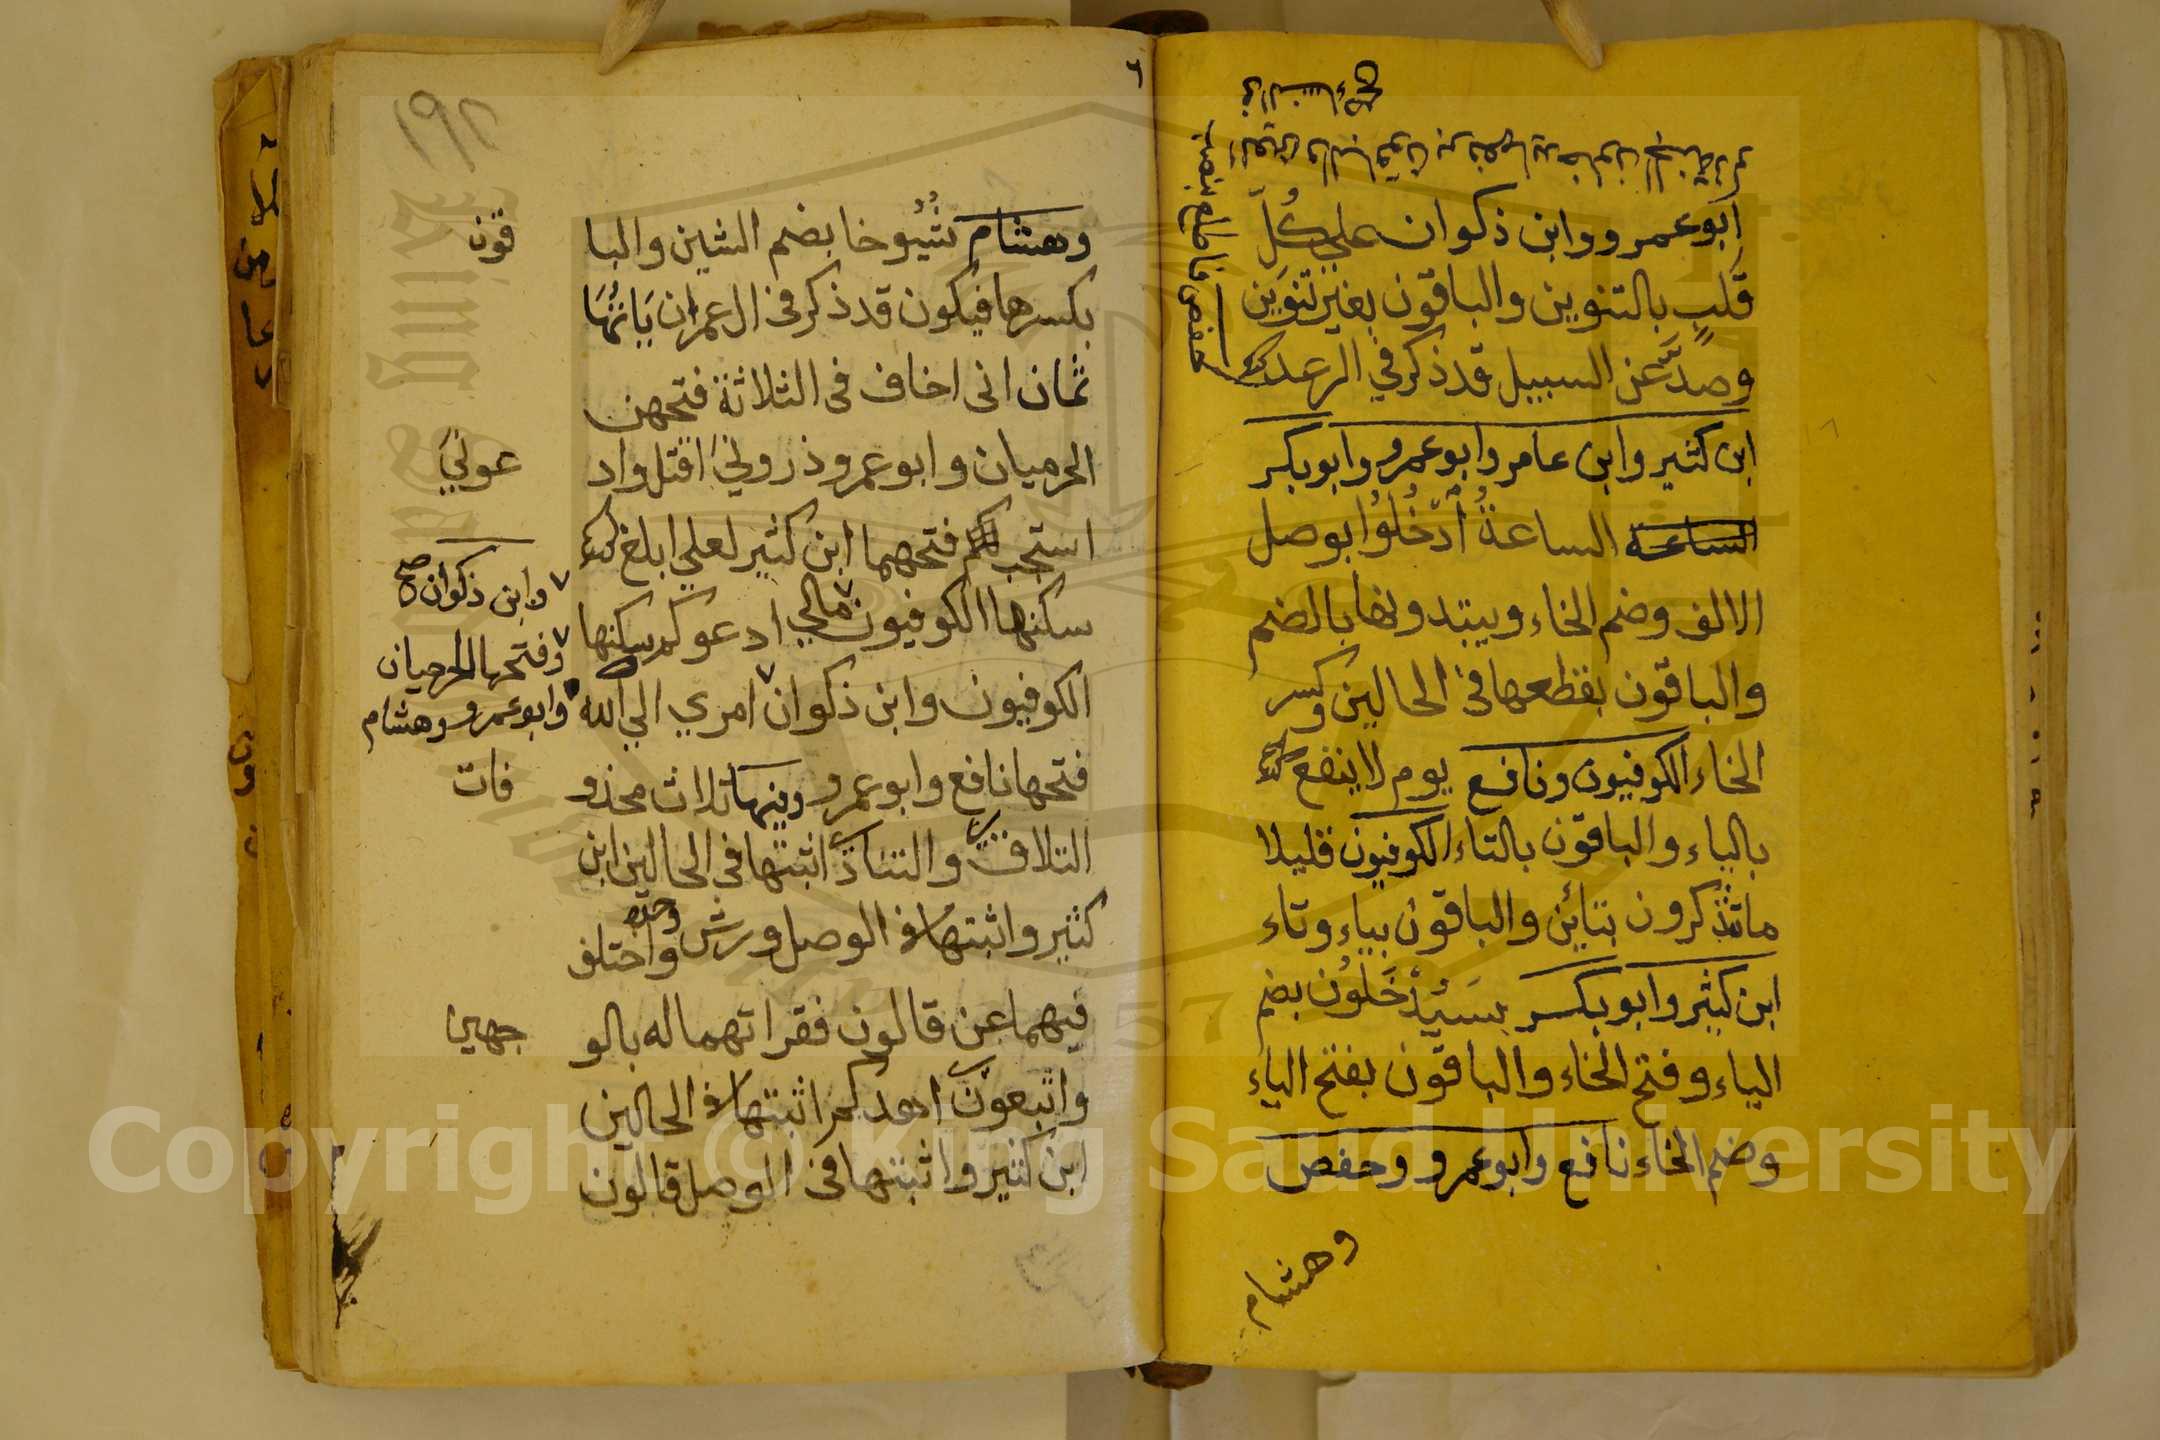 ابو عمرو وابن ذكوان علي كُلّ
قَلبٍ بالتنوين والباقون بغير تنوين
وصدّ عن السبيل قد ذكر في الرعد
حفص فاطلع بنصب
ابن كثير وابن عامر وابو عمرو وابو بكر
الساعة الساعةُ اُدْخُلُوا بوصل
الالف وضم الخاء ويبتدونها بالضم
والباقون بقطعها في الحالين وكسر
الخاء الكوفيون ونافع يوم لا ينفع
بالياء والباقون بالتاء الكوفيون قليلا
ما تتذكرون بتائين والباقون بياء وتاء
ابن كثير وابو بكر سَيُدْخَلُون بضم
الياء وفتح الخاء والباقون بفتح الياء
وضم الخاء نافع وابو عمرو وحفص
وهشام
٦
١٩٢
وهشام شُيُوخا بضم الشين والبا
قون
بكسرها فيكون قد ذكر في ال عمران يَاتُهَا
ثمان انى اخاف فى الثلاثة فتحهن
الحرميان وابو عمرو ذروني اقتل واد
عونيَ
استجب لكم فتحهما ابن كثير لعلي ابلغ
سكنها الكوفيون مالي ادعوكم سكنها
وابن ذكوان صح
الكوفيون وابن ذكوان امري الي الله
وفتحها الحرميان
وابو عمرو وهشام
فتحها نافع وابو عمرو وفيها ثلاث محذو
فات
التلاق والتناد اثبتها في الحالين ابن
كثير واثبتها في الوصل ورش وحده واختلف
فيهما عن قالون فقراتهما له بالو
جهين
واتبعون اهدكم اثبتها في الحالين
ابن كثير واثبتها في الوصل قالون
Copyright © King Saud University
King Saud University
1957